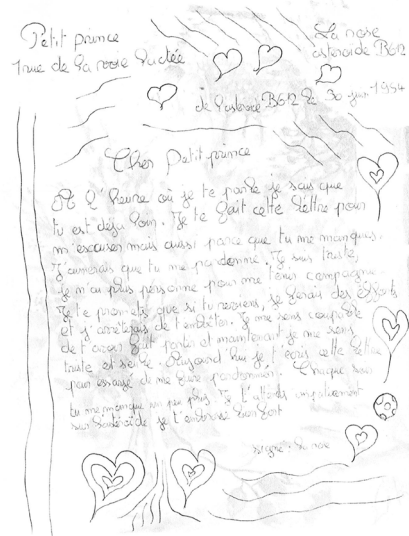 Petit prince
1 rue de la voie lactée
La rose
asteroïde B612
de l'asteroïd B612 le 30 juin 1954
Cher Petit prince
A l'heure où je te parle je sais que
tu est déja loin. Je te fait cette lettre pour
m'excuser mais aussi parce que tu me manques.
J'aimerais que tu me pardonne. Je suis triste,
je n'ai plus personne pour me tenir compagnie.
Je te promets que si tu reviens, je ferais des efforts
et j'arrêterais de t'embêter. Je me sens coupable
de t'avoir fait partir et maintenant je me sens
triste et seule. Aujourd'hui je t'écris cette lettre
pour essayé de me faire pardonner. Chaque jour
tu me manque un peu plus. Je t'attends impatiemment
sur l'astéroïde je t'embrasse bien fort
signé: la rose